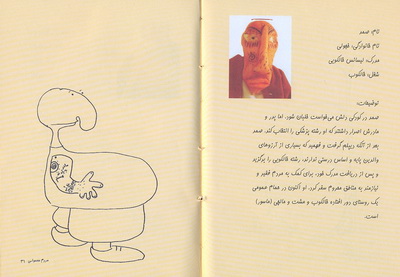 نام: صمد
نام خانوادگی: قپونی
مدرک: لیسانس فالگویی
شغل: فالگوب
توضیحات:
صمد در کودکی دلش می‌خواست خلبان شود. اما پدر و
مادرش اصرار داشتند که او رشته پزشکی را انتخاب کند. صمد
بعد از آنکه دیپلم گرفت و فهمید که بسیاری از آرزوهای
والدین پایه و اساس درستی ندارند، رشته فالگوبی را برگزید
و پس از دریافت مدرک خود، برای کمک به مردم فقیر و
نیازمند به مناطق محروم سفر کرد. او اکنون در حمام عمومی
یک روستای دور افتاده فالگوب و مشت و مالچی (ماسور)
است.
۳۱